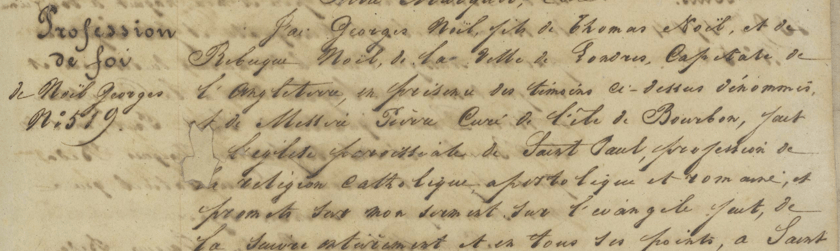 Profession
de foi
de Noël Georges
N° 519.
J'ai Georges Noël, fils de Thomas Noël, et de
Rebeque Noël, de la Ville de Londres, Capitale de
l'Angleterre, en présence des témoins ci-dessus dénommés,
et de Messire Pierre Curé de l'île de Bourbon, fait
l'église paroissiale de Saint Paul, profession de
la religion Catholique, apostolique et romaine, et
promets sur mon serment sur l'evangile fait, de
la suivre entièrement et en tous ses points, a Saint